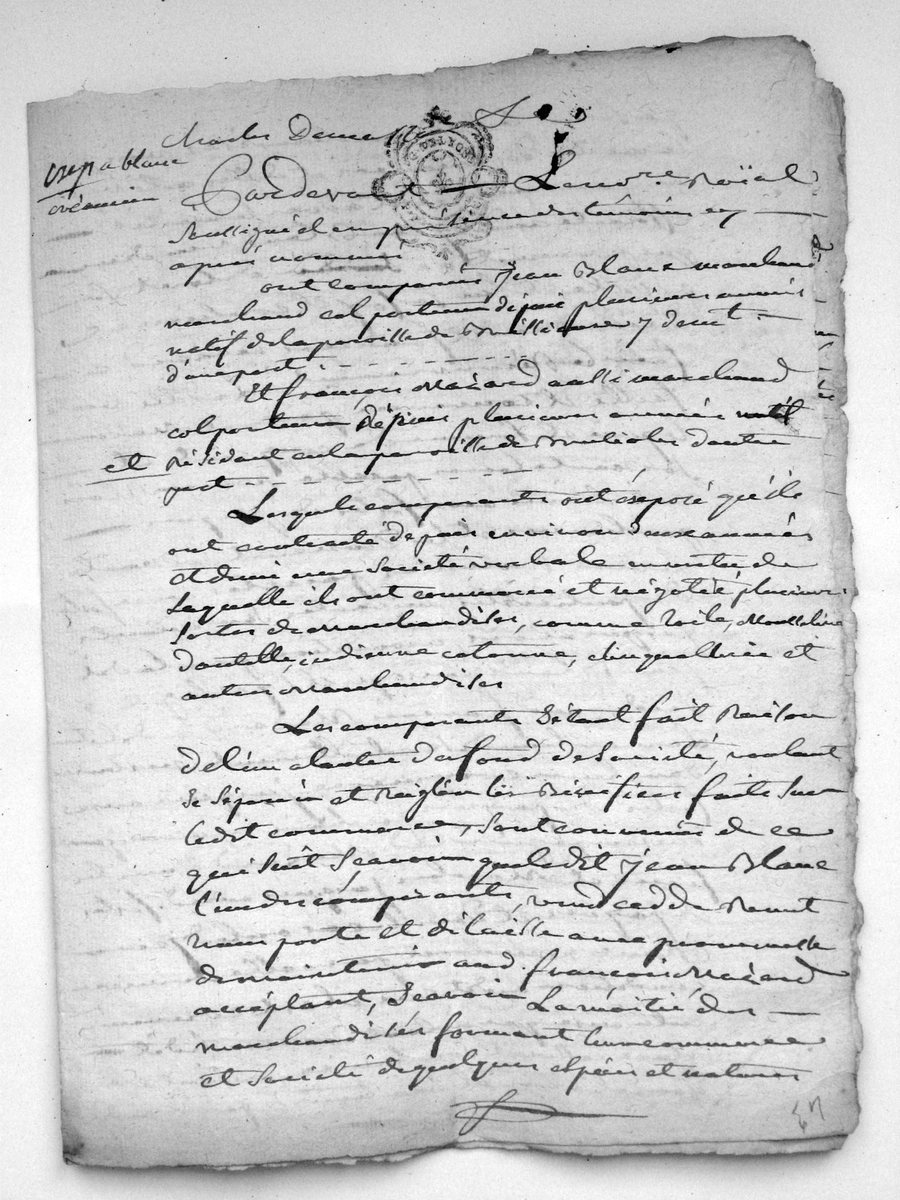 Charles
exp a blanc
Pardevant Le no.re Roïal
Soussigné et en presence des témoins ey
apres nommés
ont comparus jean Blanc marchand
marchand colporteur depuis plusieurs années
natif de la paroisse de y demt.
d'une part
Et françois Mazard aussi marchand
colporteur dépuis plusieurs années natif
et Résidant en la paroisse de d'autre
part
Lesquels comparants ont éxposé qu'ils
ont contracté depuis environ deux années
et demi une Société verbale en vertu de
Laquelle ils ont commercé et négotié plusieurs
Sortes de Marchandises, comme Toile, Mousseline
dantelle, indienne cotonne, clinqualherie et
autres Marchandises
Les comparants S'étant fait Raison
de l'éxcedent du fond de Société, voulant
Se Séparer et Reigler les Bénéfices faits Sur
ledit commerce, Sont convenus de ce
qui Suit Sçavoir que ledit jean Blanc
l'un des comparants, vend cedde Remet
transporte et délaisse avec promesse
de maintenir aud. françois Mazard
accéptant, Sçavoir La moitié des
marchandises formant leur commerce
et Société de quelques espéces et natures